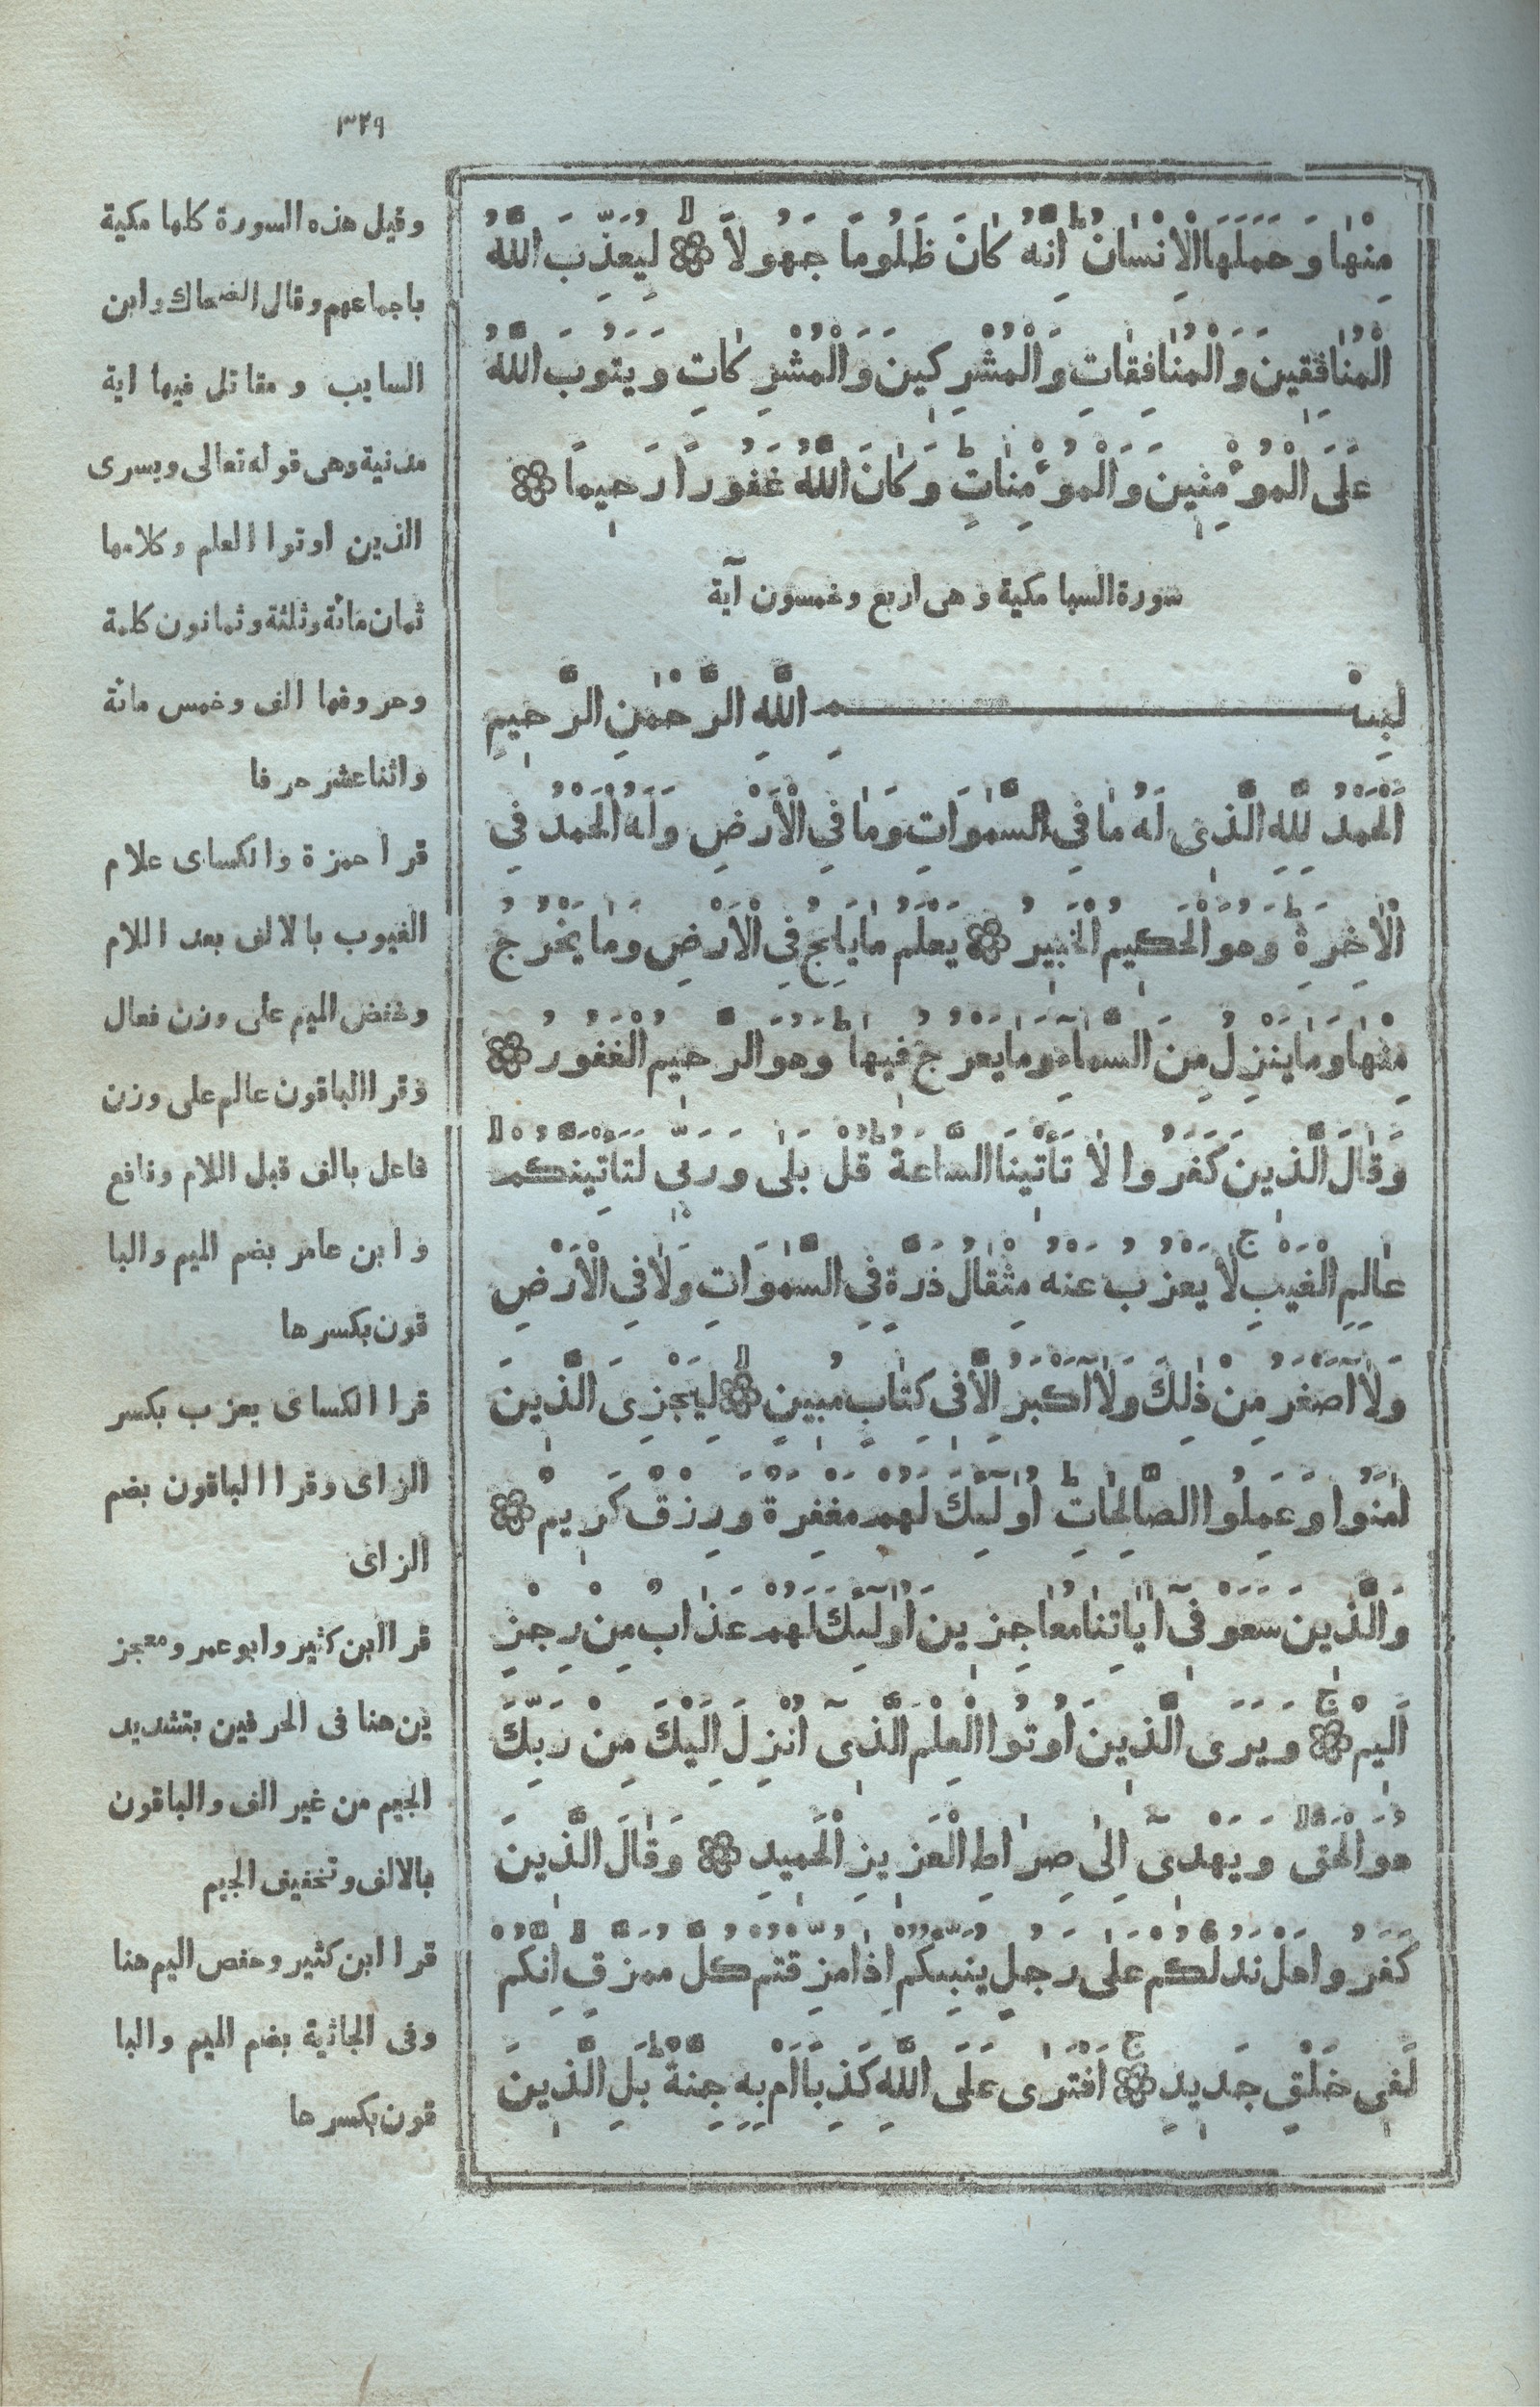 ٣٢٩
مِنْهَا وَحَمَلَهَا الْاِنْسَانُ ط اِنَّهُ كَانَ ظَلُومًا جَهُولاً لا ۞ لِيُعَذِّبَ اللّٰهُ
الْمُنَافِقِينَ وَالْمُنَافِقَاتِ وَالْمُشْرِكِينَ وَالْمُشْرِكَاتِ وَيَتُوبَ اللّٰهُ
عَلَى الْمُوْمِنِينَ وَالْمُوْمِنَاتِ ط وَكَانَ اللّٰهُ غَفُورًا رَحِيمًا ۞
سورة السبا مكية وهى اربع وخمسون آية
بِسْمِ اللّٰهِ الرَّحْمٰنِ الرَّحِيمِ
اَلْحَمْدُ لِلّٰهِ الَّذِى لَهُ مَا فِى السَّمٰوَاتِ وَمَا فِى الْاَرْضِ وَلَهُ الْحَمْدُ فِى
الْاٰخِرَةِ ط وَهُوَ الْحَكِيمُ الْخَبِيرُ ۞ يَعْلَمُ مَا يَلِجُ فِى الْاَرْضِ وَمَا يَخْرُجُ
مِنْهَا وَمَا يَنْزِلُ مِنَ السَّمَآءِ وَمَا يَعْرُجُ فِيهَا ط وَهُوَ الرَّحِيمُ الْغَفُورُ ۞
وَقَالَ الَّذِينَ كَفَرُوا لَا تَأْتِينَا السَّاعَةُ ط قُلْ بَلٰى وَرَبِّى لَتَاتِيَنَّكُمْ لا
عَالِمِ الْغَيْبِ ج لَا يَعْزُبُ عَنْهُ مِثْقَالُ ذَرَّةٍ فِى السَّمٰوَاتِ وَلَا فِى الْاَرْضِ
وَلَآ اَصْغَرُ مِنْ ذٰلِكَ وَلَآ اَكْبَرُ اِلَّا فِى كِتَابٍ مُبِينٍ لا ۞ لِيَجْزِىَ الَّذِينَ
اٰمَنُوا وَعَمِلُوا الصَّالِحَاتِ ط اُولٰٓئِكَ لَهُمْ مَغْفِرَةٌ وَرِزْقٌ كَرِيمٌ ۞
وَالَّذِينَ سَعَوْ فِىٓ اٰيَاتِنَا مُعَاجِزِينَ اُولٰٓئِكَ لَهُمْ عَذَابٌ مِنْ رِجْزٍ
اَلِيمٌ ج ۞ وَيَرَى الَّذِينَ اُوتُوا الْعِلْمَ الَّذِىٓ اُنْزِلَ اِلَيْكَ مِنْ رَبِّكَ
هُوَ الْحَقَّ لا وَيَهْدِىٓ اِلٰى صِرَاطِ الْعَزِيزِ الْحَمِيدِ ۞ وَقَالَ الَّذِينَ
كَفَرُوا هَلْ نَدُلُّكُمْ عَلٰى رَجُلٍ يُنَبِّئُكُمْ اِذَا مُزِّقْتُمْ كُلَّ مُمَزَّقٍ لا اِنَّكُمْ
لَفِى خَلْقٍ جَدِيدٍ ج ۞ اَفْتَرٰى عَلَى اللّٰهِ كَذِبًا اَمْ بِهِ جِنَّةٌ ط بَلِ الَّذِينَ
وقيل هذه السورة كلها مكية
باجماعهم وقال الضحاك وابن
السايب ومقاتل فيها اية
مدنية وهى قوله تعالى ويسرى
الذين اوتوا العلم وكلامها
ثمان مائة وثلثة وثمانون كلمة
وحروفها الف وخمس مائة
واثنا عشر حرفا
قرا حمزة والكساى علام
الغيوب بالالف بعد اللام
وخفض الميم على وزن فعال
وقرا الباقون عالم على وزن
فاعل بالف قبل اللام ونافع
وابن عامر بضم الميم والبا
قون بكسرها
قرا الكساى يعزب بكسر
الزاى وقرا الباقون بضم
الزاى
قرا ابن كثير وابو عمرو معجز
ين هنا فى الحرفين بتشديد
الجيم من غير الف والباقون
بالالف وتخفيف الجيم
قرا ابن كثير وحفص اليم هنا
وفى الجاثية بضم الميم والبا
قون بكسرها